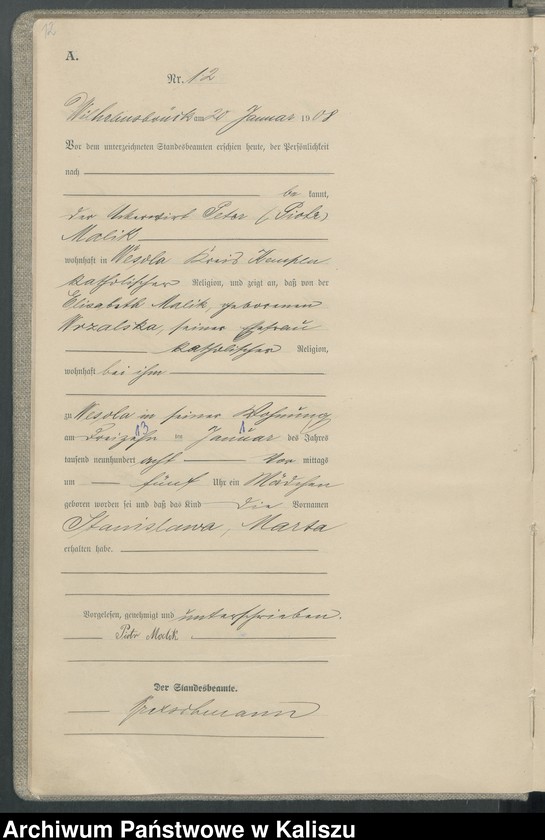 12
A.
Nr. 12
Wilhelmsbrück am 20 Januar 1908
Vor dem unterzeichneten Standesbeamten erschien heute, der Persönlichkeit
nach
be kannt,
der Ackerwirt Peter (Piotr)
Malik
wohnhaft in Wesola Kreis Kempen
katholischer Religion, und zeigt an, daß von der
Elisabeth Malik, geborenen
Wrzalska, seiner Ehefrau
katholischer Religion,
wohnhaft bei ihm
zu Wesola in seiner Wohnung
13 1
am dreizehn ten Januar des Jahres
tausend neunhundert acht Vor mittags
um fünf Uhr ein Mädchen
geboren worden sei und daß das Kind die Vornamen
Stanislawa, Marta
erhalten habe.
Vorgelesen, genehmigt und unterschrieben.
Piotr Malik
Der Standesbeamte.
Archiwum Państwowe w Kaliszu